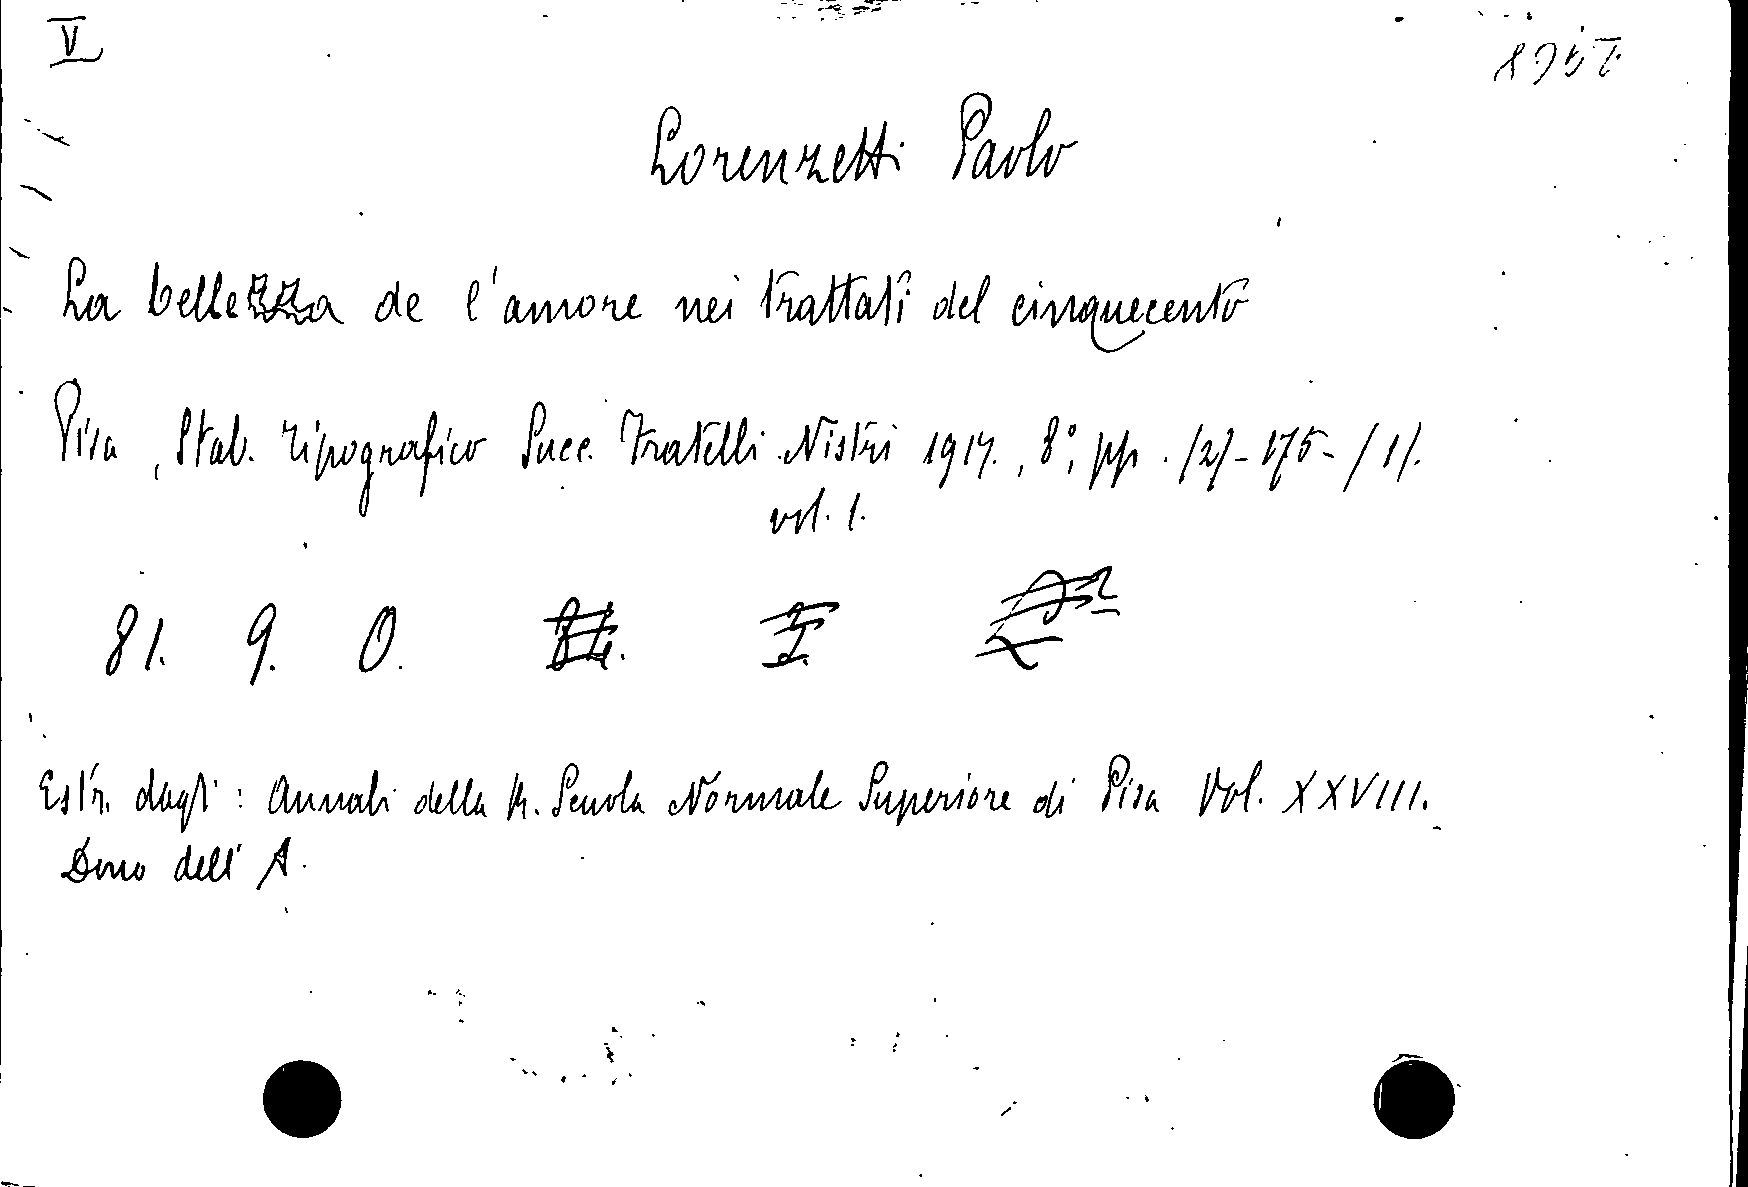 V
Lorenzetti Paolo
La bellezza de l'amore nei trattati del cinquecento
Pisa, Stab. Tipografico Succ. Fratelli Nistri 1917., 8°, pp. /2/-175-/1/.
vol. 1.
81. 9. 0.
Estr. dagli: Annali della R. Scuola Normale Superiore di Pisa Vol. XXVIII.
Dono dell'A.